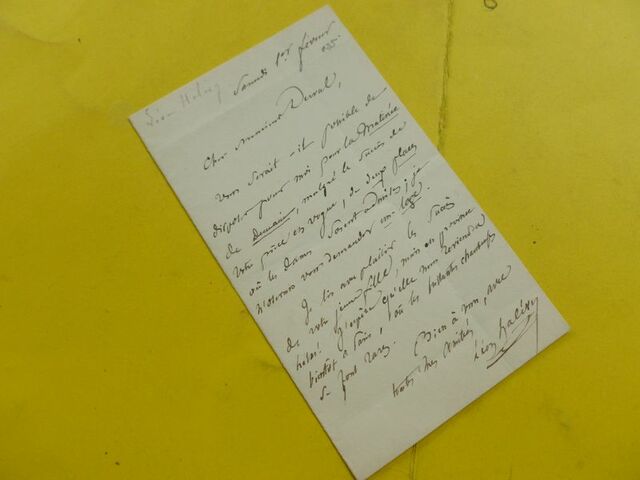 Léon Halévy
Samedi 1er février
Cher Monsieur Duval,
Vous serait-il possible de
disposer pour moi pour la Matinée
de Demain, malgré le succès de
votre pièce en vogue, de deux places
où les dames soient admises; je
n'oserais vous demander une loge.
Je lis avec plaisir les succès
de votre jeune fille, mais en province
hélas! J'espère qu'elle nous reviendra
bientôt à Paris, où les
se font rares. Bien à vous, avec
toutes mes amitiés
Léon Halévy